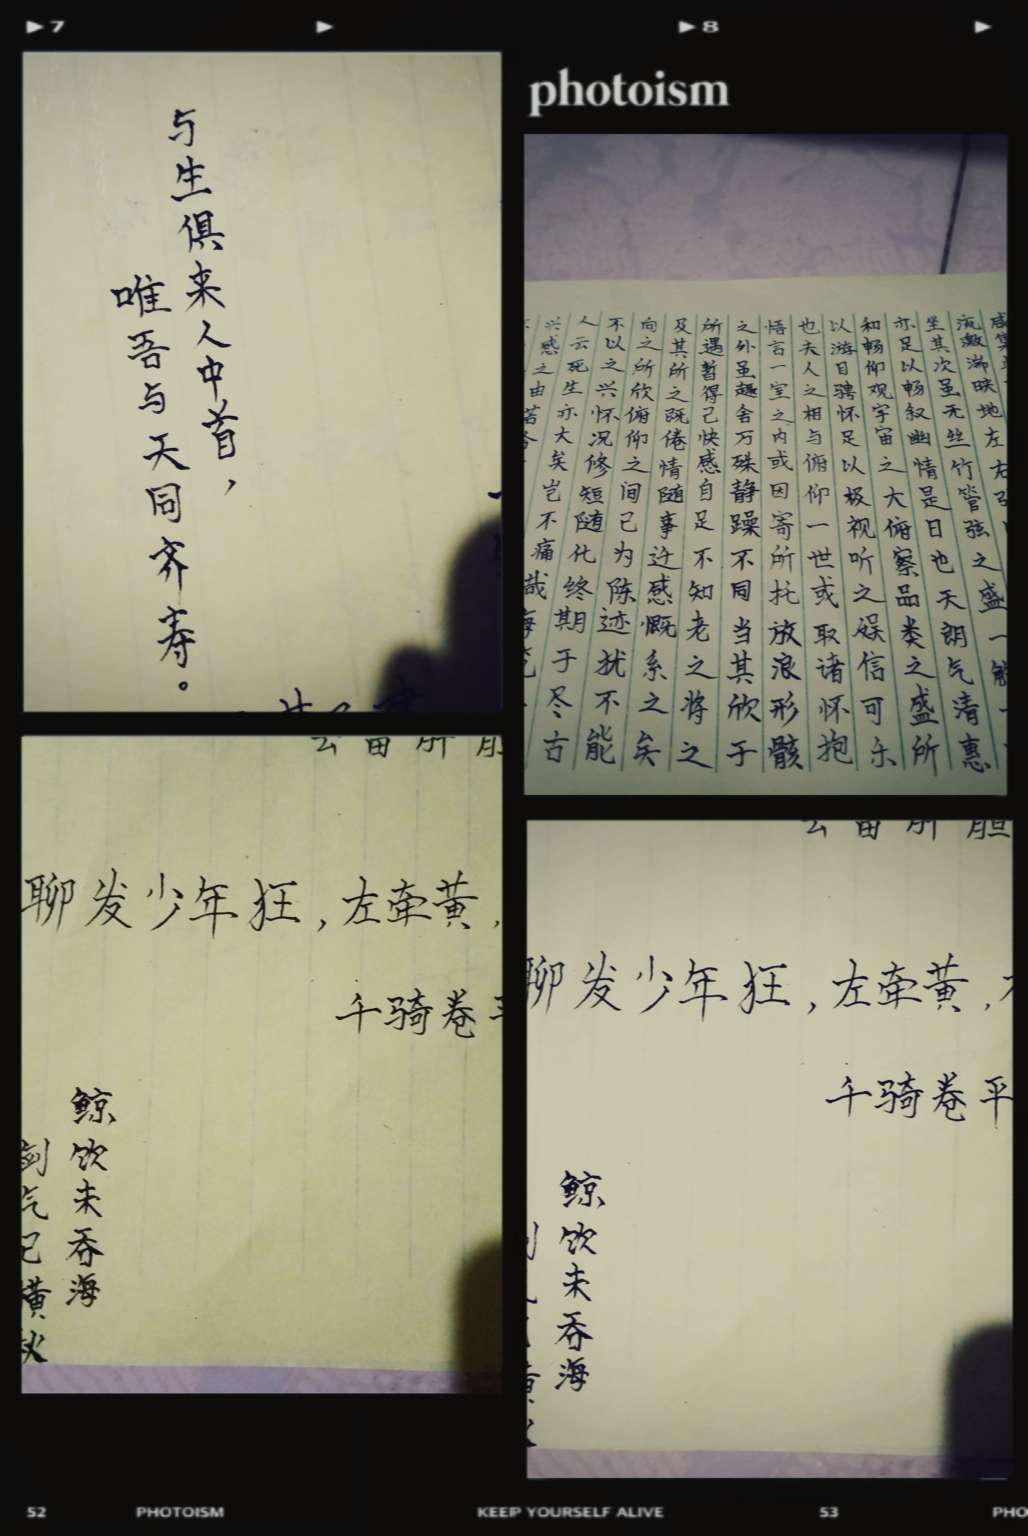 7
8
photoism
与生俱来人中首，
唯吾与天同齐寿。
流激湍映地左右
坐其次虽无丝竹管弦之盛一觞
亦足以畅叙幽情是日也天朗气清惠
和畅仰观宇宙之大俯察品类之盛所
以游目骋怀足以极视听之娱信可乐
也夫人之相与俯仰一世或取诸怀抱
悟言一室之内或因寄所托放浪形骸
之外虽趣舍万殊静躁不同当其欣于
所遇暂得己快感自足不知老之将之
及其所之既倦情随事迁感慨系之矣
向之所欣俯仰之间已为陈迹犹不能
不以之兴怀况修短随化终期于尽古
人云死生亦大矣岂不痛哉
兴感之由若合
聊发少年狂，左牵黄，
千骑卷
鲸饮未吞海
剑气已横秋
聊发少年狂，左牵黄，
千骑卷平
鲸饮未吞海
52
PHOTOISM
KEEP YOURSELF ALIVE
53
PHO